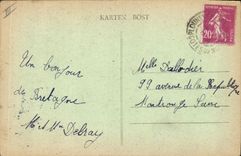 KARTEN BOST
Un bonjour
de Bretagne
M et Mme Delray
Melle Dallodier
99 avenue de la République
Montrouge Seine
20c